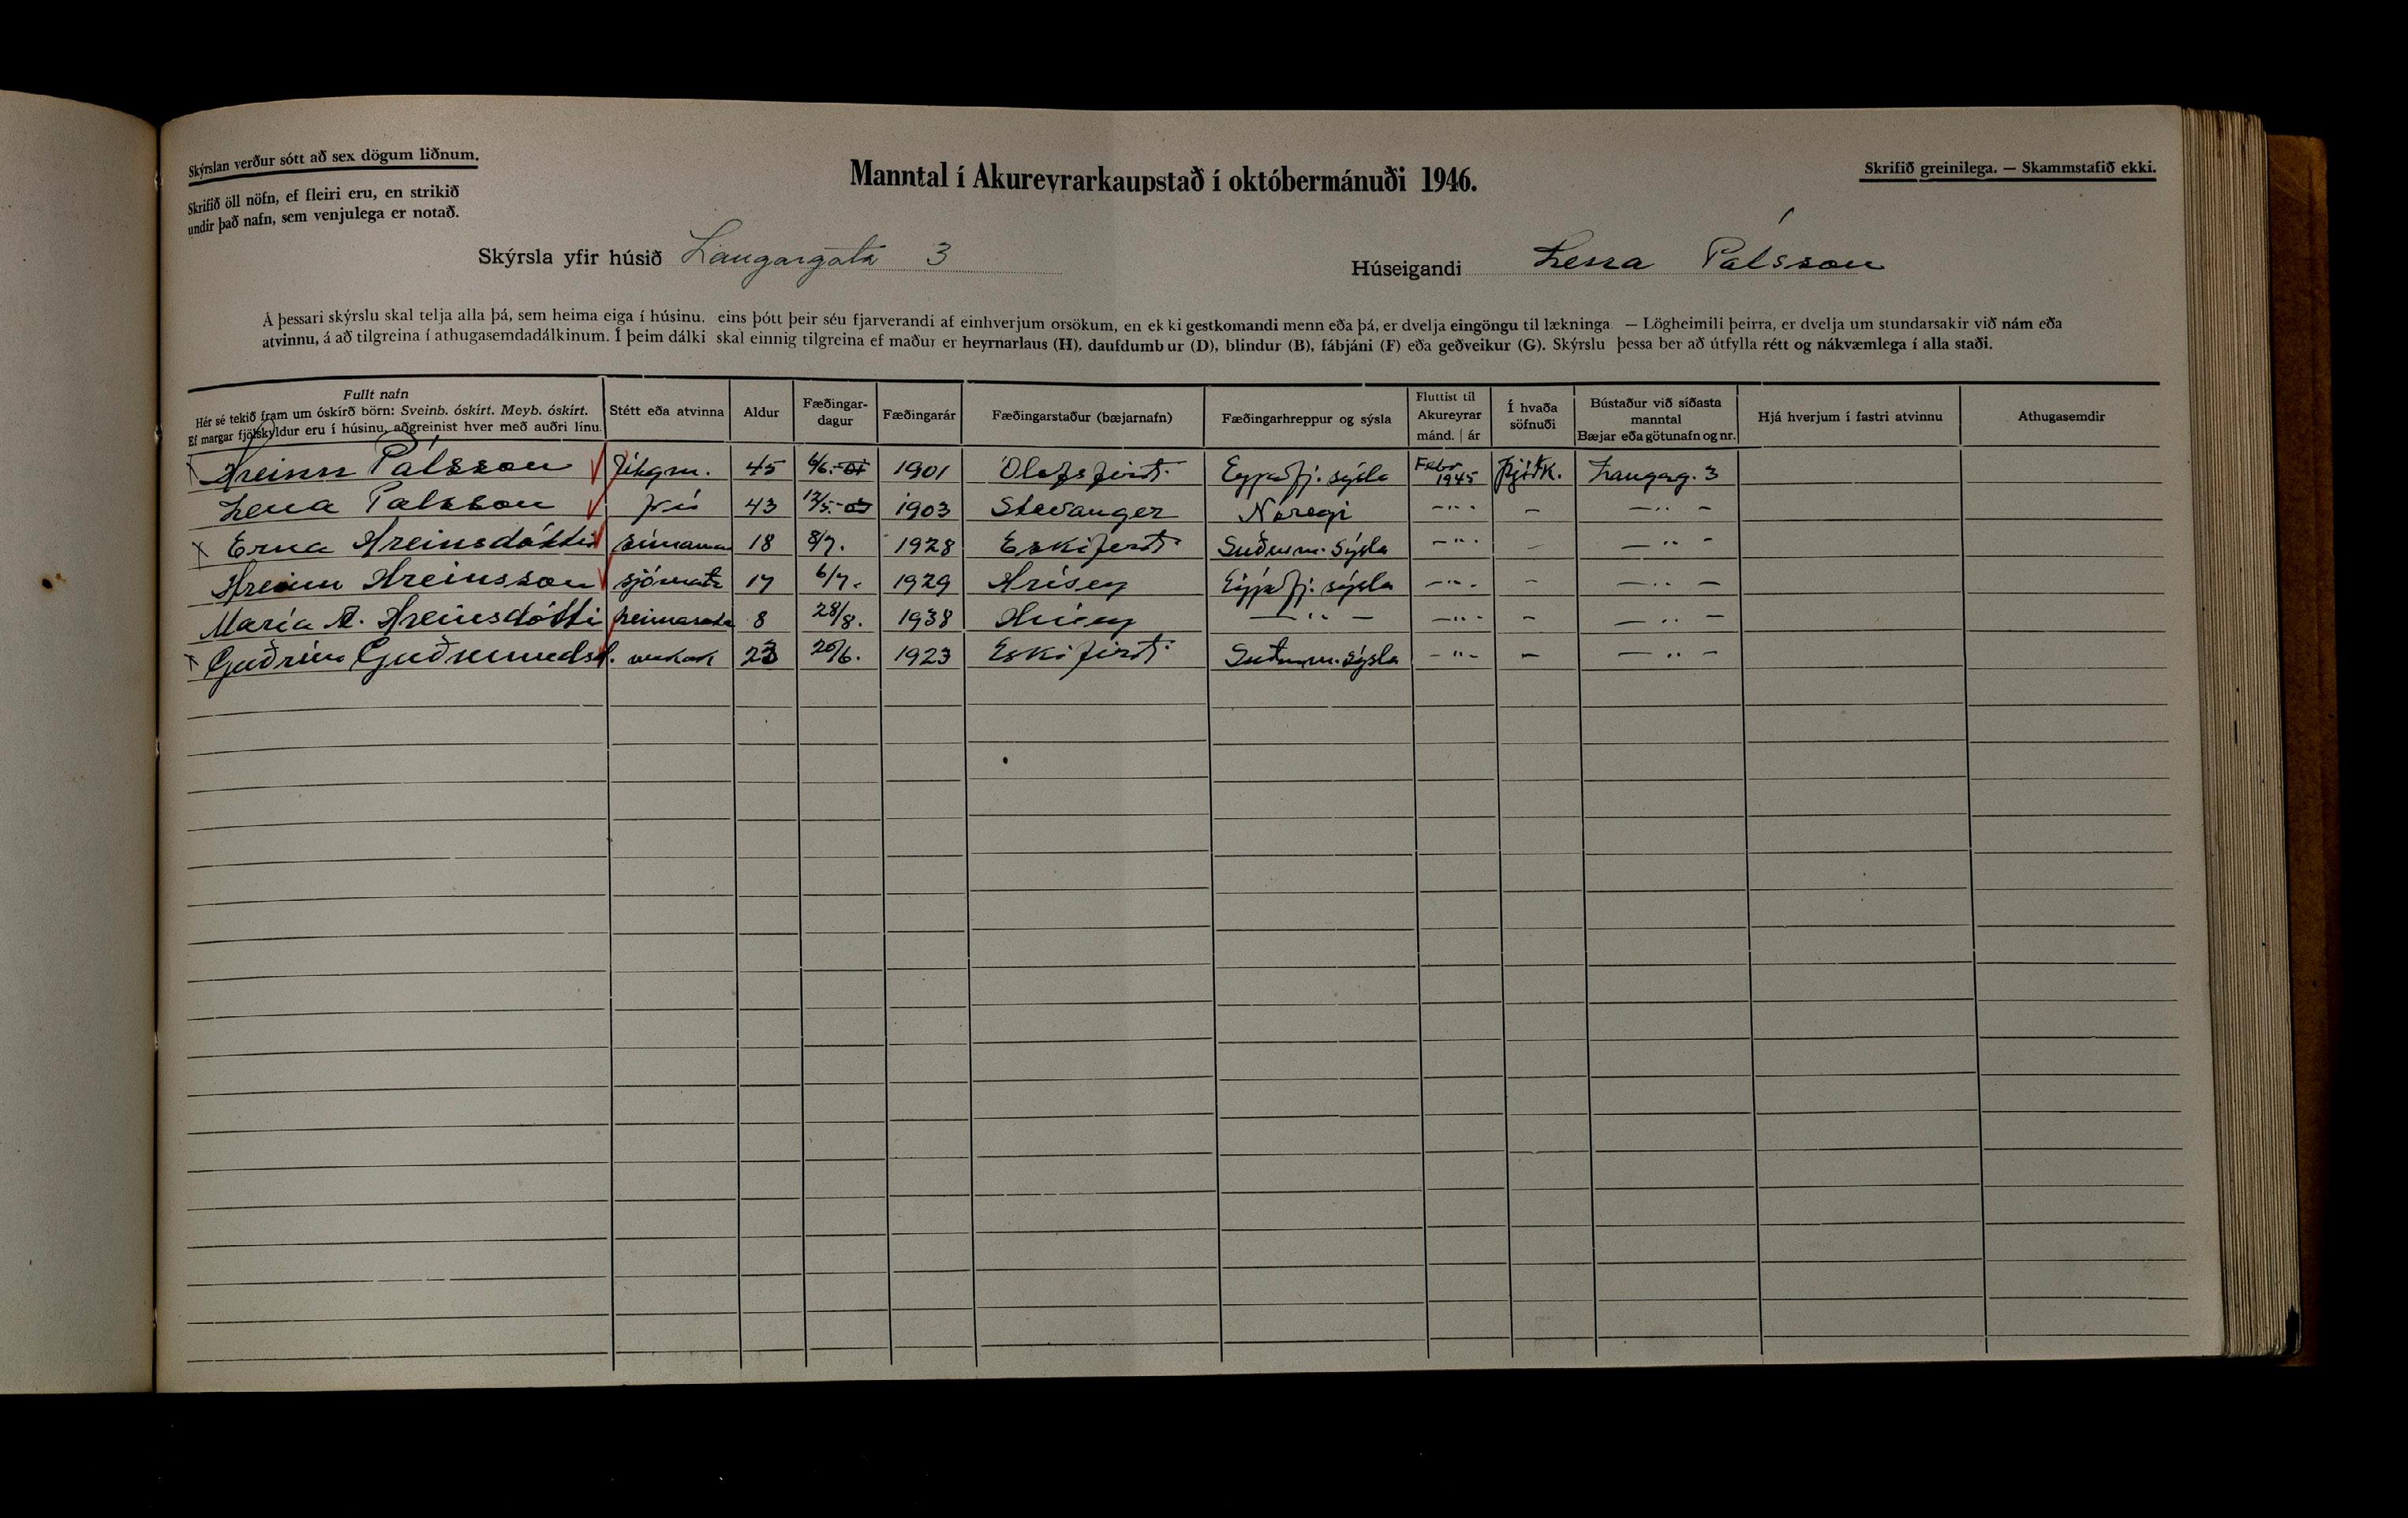 Skýrslan verður sótt að sex dögum liðnum.
Skrifið öll nöfn, ef fleiri eru, en strikið
undir það nafn, sem venjulega er notað.
Manntal í Akureyrarkaupstað í októbermánuði 1946.
Skrifið greinilega. — Skammstafið ekki.
Skýrsla yfir húsið Laugargata 3
Húseigandi Lena Pálsson
Á þessari skýrslu skal telja alla þá, sem heima eiga í húsinu, eins þótt þeir séu fjarverandi af einhverjum orsökum, en ek ki gestkomandi menn eða þá, er dvelja eingöngu til lækninga. — Lögheimili þeirra, er dvelja um stundarsakir við nám eða
atvinnu, á að tilgreina í athugasemdadálkinum. Í þeim dálki skal einnig tilgreina ef maður er heyrnarlaus (H), daufdumb ur (D), blindur (B), fábjáni (F) eða geðveikur (G). Skýrslu þessa ber að útfylla rétt og nákvæmlega í alla staði.
Fullt nafn
Hér sé tekið fram um óskírð börn: Sveinb. óskírt. Meyb. óskírt.
Ef margar fjölskyldur eru í húsinu, aðgreinist hver með auðri línu.
Stétt eða atvinna
Aldur
Fæðingar-
dagur
Fæðingarár
Fæðingarstaður (bæjarnafn)
Fæðingarhreppur og sýsla
Fluttist til
Akureyrar
mánd. | ár
Í hvaða
söfnuði
Bústaður við síðasta
manntal
Bæjar eða götunafn og nr.
Hjá hverjum í fastri atvinnu
Athugasemdir
Hreinn Pálsson 45 6/6. 1901 Ólafsfirði Eyjafj. sýsla Febr 1945 Þjóðk. Laugarg. 3
Lena Pálsson frú 43 12/5. 1903 Stavanger Noregi -"- - -"-
Erna Hreinsdóttir 18 8/7. 1928 Eskifirði Suðurm. sýsla -"- - -"-
Hreinn Hreinsson 17 6/7. 1929 Hrísey Eyjafj. sýsla -"- - -"-
María A. Hreinsdótti heimasæta 8 28/8. 1938 Hrísey -"- -"- - -"-
Guðrún Guðmundsd. 23 26/6. 1923 Eskifirði Suðurm. sýsla -"- - -"-